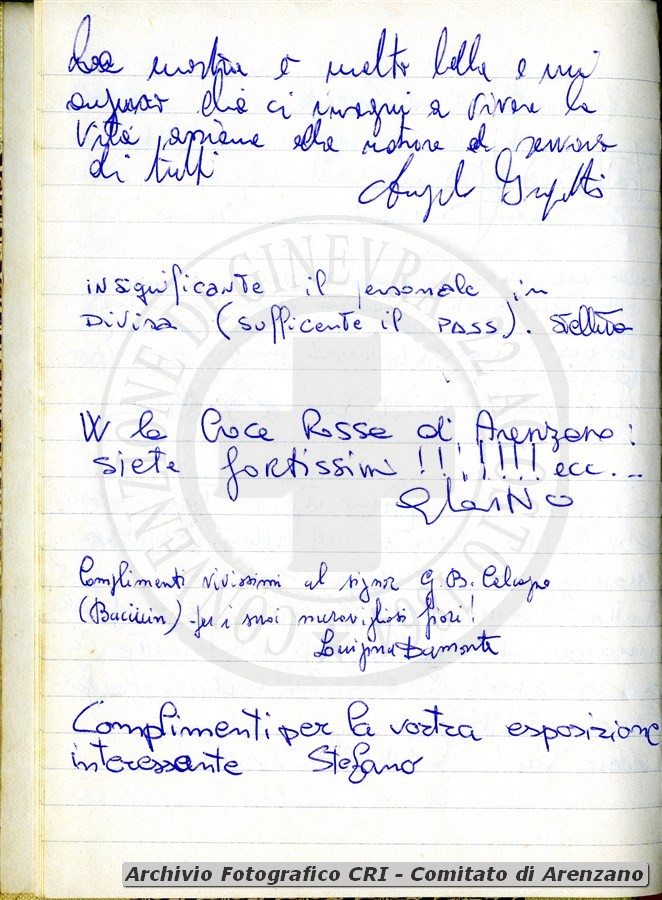 mostra è molto bella e mi
auguro che ci insegni a vivere la
vita assieme alla natura al servizio
di tutti
insignificante il personale in
divisa (sufficente il pass). stellina
W la Croce Rossa di Arenzano!
siete fortissimi !!!!!!! ecc...
Complimenti vivissimi al signor G. B. Calcagno
(Baciccin) per i suoi meravigliosi fiori!
Luigina Damonte
Complimenti per la vostra esposizione
interessante Stefano
CONVENZIONE DI GINEVRA 22 AGOSTO
Archivio Fotografico CRI - Comitato di Arenzano